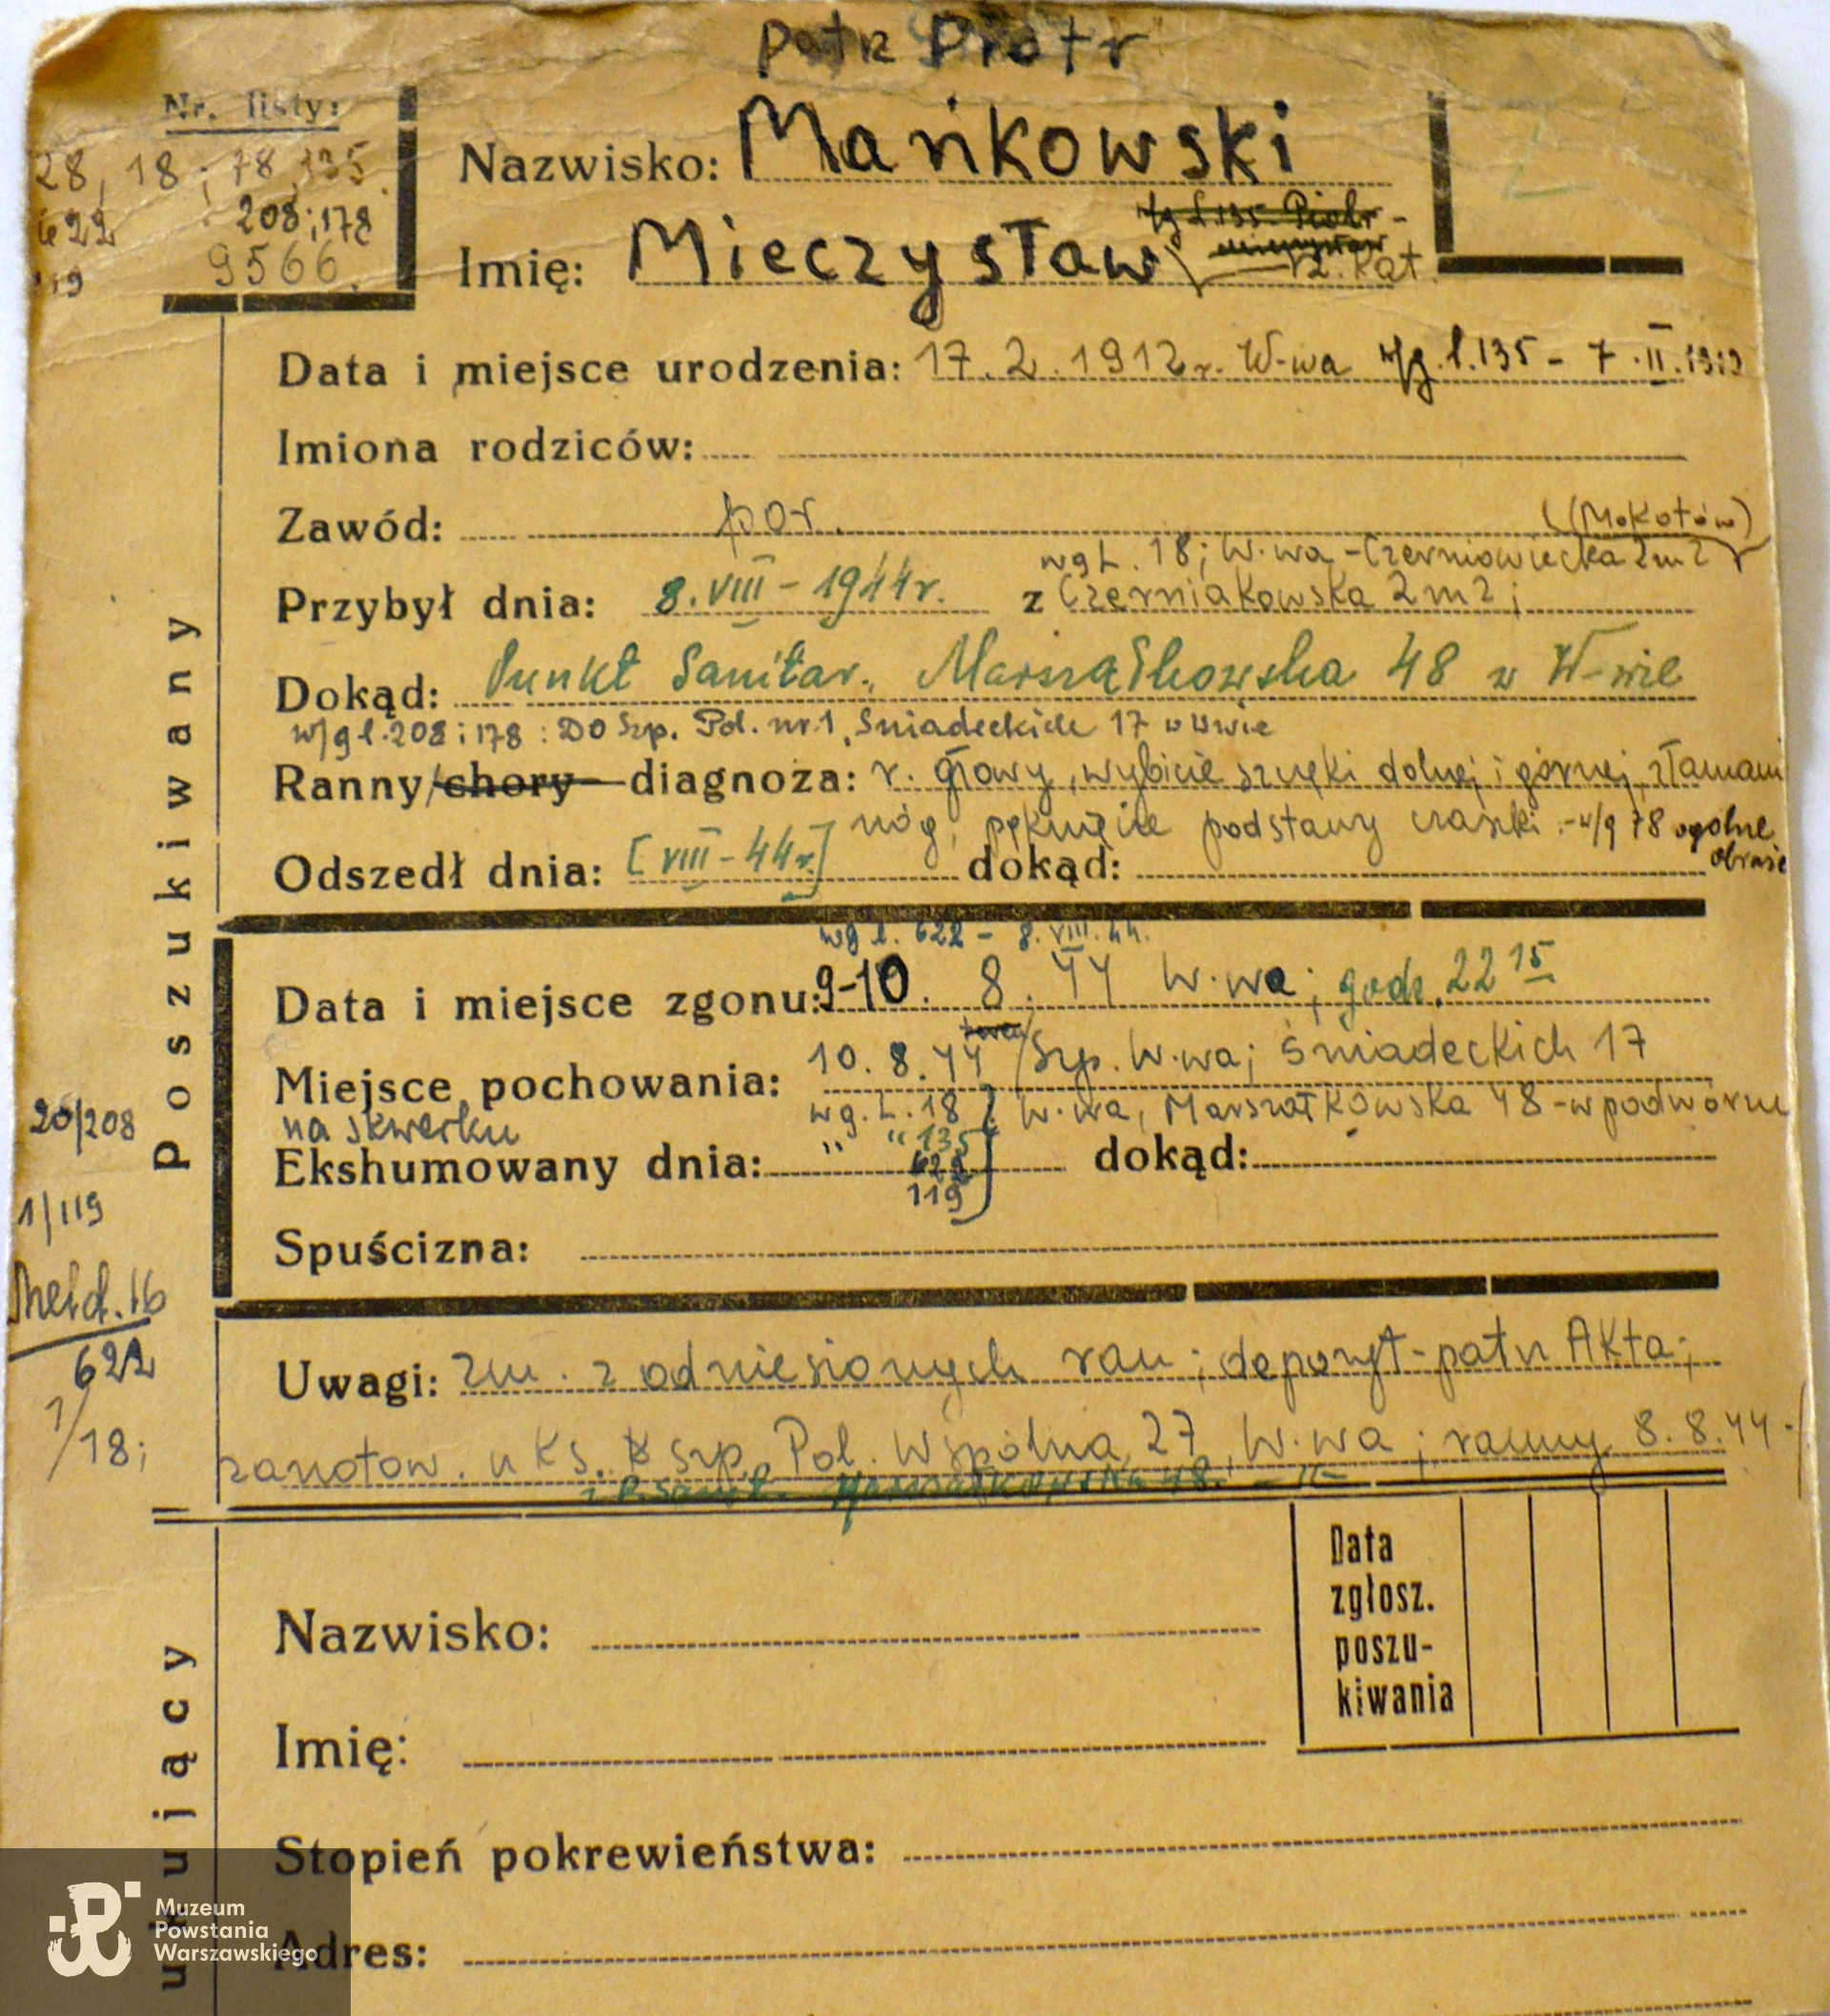 patrz Piotr
Nr. listy:
28, 18; 78, 135
622 208; 178
119 9566.
Nazwisko: Mańkowski
w/g l. 135 Piotr -
Imię: Mieczysław rz. kat.
Data i miejsce urodzenia: 17. 2. 1912 r. W-wa w/g l. 135 - 7. II. 1912
Imiona rodziców:
Zawód: por.
(Mokotów)
wg L. 18; W-wa - Czerniowiecka 2 m 2
Przybył dnia: 8. VIII - 1944 r. z Czerniakowska 2 m 2;
Dokąd: Punkt Sanitar., Marszałkowska 48 w W-wie
w/g l. 208 i 178: Do Szp. Pol. nr. 1, Śniadeckich 17 w Wwie
Ranny/chory - diagnoza: r. głowy, wybicie szczęki dolnej i górnej, złamani
nóg, pęknięcie podstawy czaszki. - w/g 78 ogólne
obraże
Odszedł dnia: [VIII - 44 r.] dokąd:
wg l. 622 - 8. VIII. 44.
Data i miejsce zgonu: 9-10. 8. 44 W-wa; godz. 22 15
Miejsce pochowania: 10. 8. 44 / Szp. W-wa; Śniadeckich 17
na skwerku wg. L. 18 } W-wa, Marszałkowska 48 - w podwórzu
" " 135
Ekshumowany dnia: 622 dokąd:
119
Spuścizna:
20/208
1/119
Meld. 16
622
1/18;
Uwagi: zm. z odniesionych ran; depozyt - patrz Akta;
zanotow. w Ks. Szp. Pol. Wspólna 27, W-wa; ranny 8. 8. 44 -
i P. Sanit. Marszałkowska 48. - " -
Poszukiwany
Nazwisko:
Imię:
Stopień pokrewieństwa:
Adres:
Data
zgłosz.
poszu-
kiwania
ukujący
Muzeum
Powstania
Warszawskiego